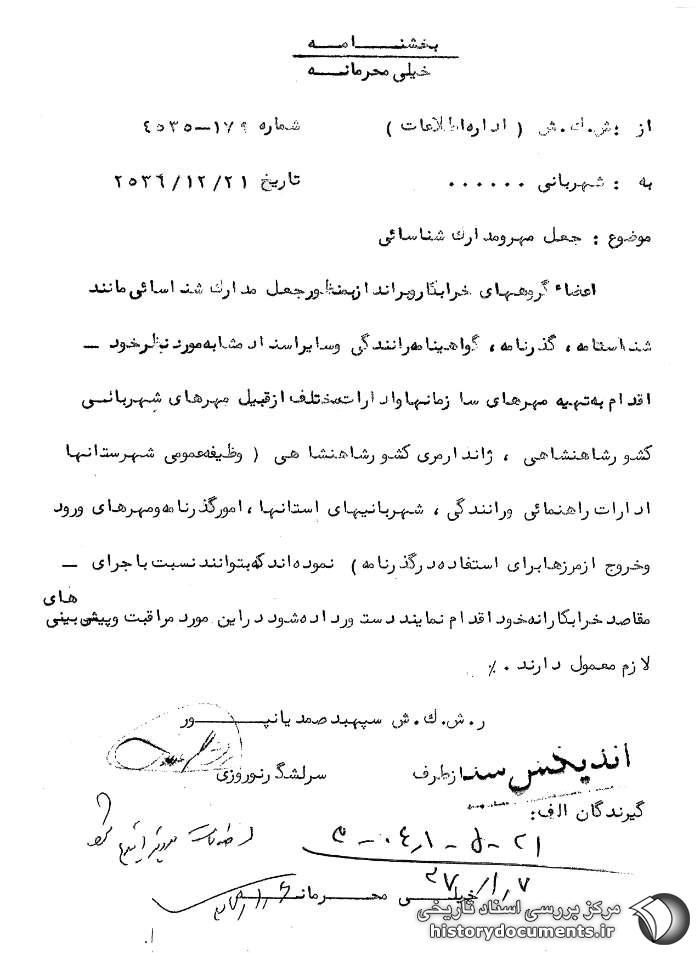 بخشنـــامــه
خیلی محرمانــه
از : ش.ك.ش ( اداره اطلاعات ) شماره ۱۷۹-۴۵۳۵
به : شهربانی ۰۰۰۰۰۰ تاریخ ۲۵۳۶/۱۲/۲۱
موضوع : جعل مهرومدارك شناسائی
اعضاء گروههای خرابکاروبراندازبمنظورجعل مدارك شناسائی مانند
شناسنامه ، گذرنامه ، گواهینامه رانندگی وسایراسناد مشابه مورد نظرخود ــ
اقدام به تهیه مهرهای سازمانهاوادارات مختلف ازقبیل مهرهای شهربانــی
کشورشاهنشاهی ، ژاندارمری کشورشاهنشاهی ( وظیفه عمومی شهرستانها
ادارات راهنمائی ورانندگی ، شهربانیهای استانها ، امورگذرنامه ومهرهای ورود
وخروج ازمرزهابرای استفاده درگذرنامه ) نموده اند که بتوانند نسبت باجرای ــ
مقاصد خرابکارانه خود اقدام نمایند دستورداده شود دراین مورد مراقبت وپیش بینی های
لازم معمول دارند ٠٪
ر.ش.ك.ش سپهبد صمدیانپـــــور
اندیکس سنا ازطرف سرلشگرنوروزی
گیرندگان الف :
خیلــی محــرمانــه
مرکز بررسی اسناد تاریخی
historydocuments.ir